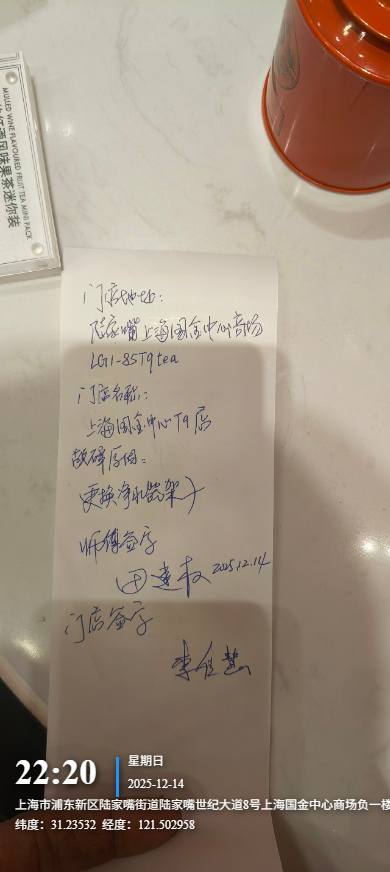 MULLED WINE FLAVOURED FRUIT TEA MINI PACK
红酒风味果茶迷你装
门店地址:
陆家嘴上海国金中心商场
LG1-85T9tea
门店名称:
上海国金中心T9店
故障原因:
更换净水器架子
师傅签字
田建权 2025.12.14
门店签字
李佳慧
22:20
星期日
2025-12-14
上海市浦东新区陆家嘴街道陆家嘴世纪大道8号上海国金中心商场负一楼
纬度: 31.23532 经度: 121.502958